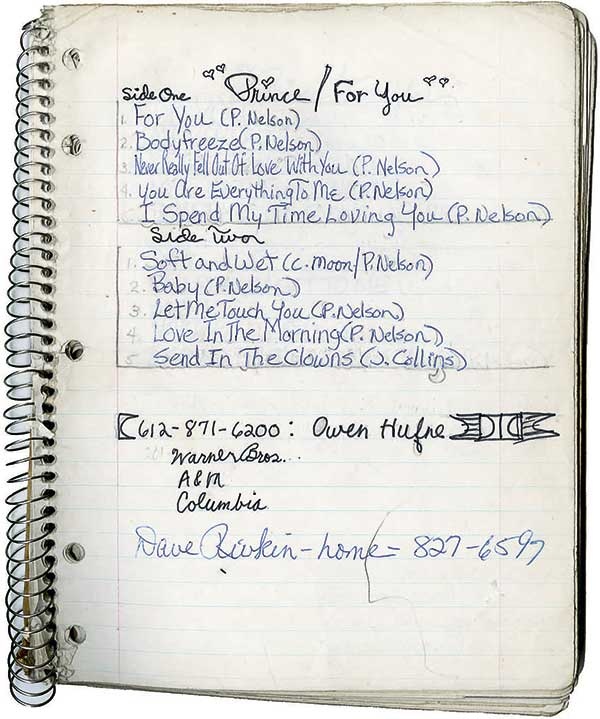 Side One "Prince / For You"
1. For You (P. Nelson)
2. Bodyfreeze (P. Nelson)
3. Never Really Fell Out Of Love With You (P. Nelson)
4. You Are Everything To Me (P. Nelson)
I Spend My Time Loving You (P. Nelson)
Side Two
1. Soft and Wet (C. Moon/P. Nelson)
2. Baby (P. Nelson)
3. Let Me Touch You (P. Nelson)
4. Love In The Morning (P. Nelson)
5 Send In The Clowns (J. Collins)
612-871-6200: Owen Hufne
Warner Bros...
A&M
Columbia
Dave Rivkin - home = 827-6597